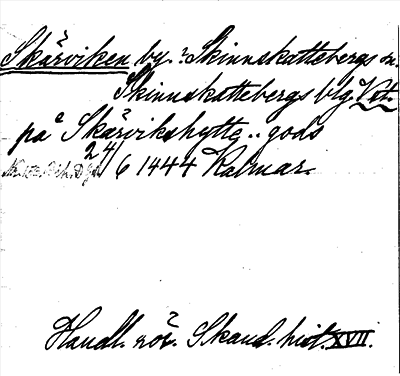 Skärviken by. Skinnskattebergs sn.
Skinnskattebergs blg. Vst.
på Skärvikshytte .. gods
24/6 1444 Kalmar.
Handl. rör. Skand. hist. XVII.